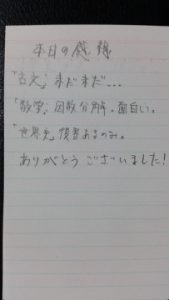 本日の感想
「古文」まだまだ...
「数学」因数分解。面白い。
「世界史」復習あるのみ。
ありがとうございました!